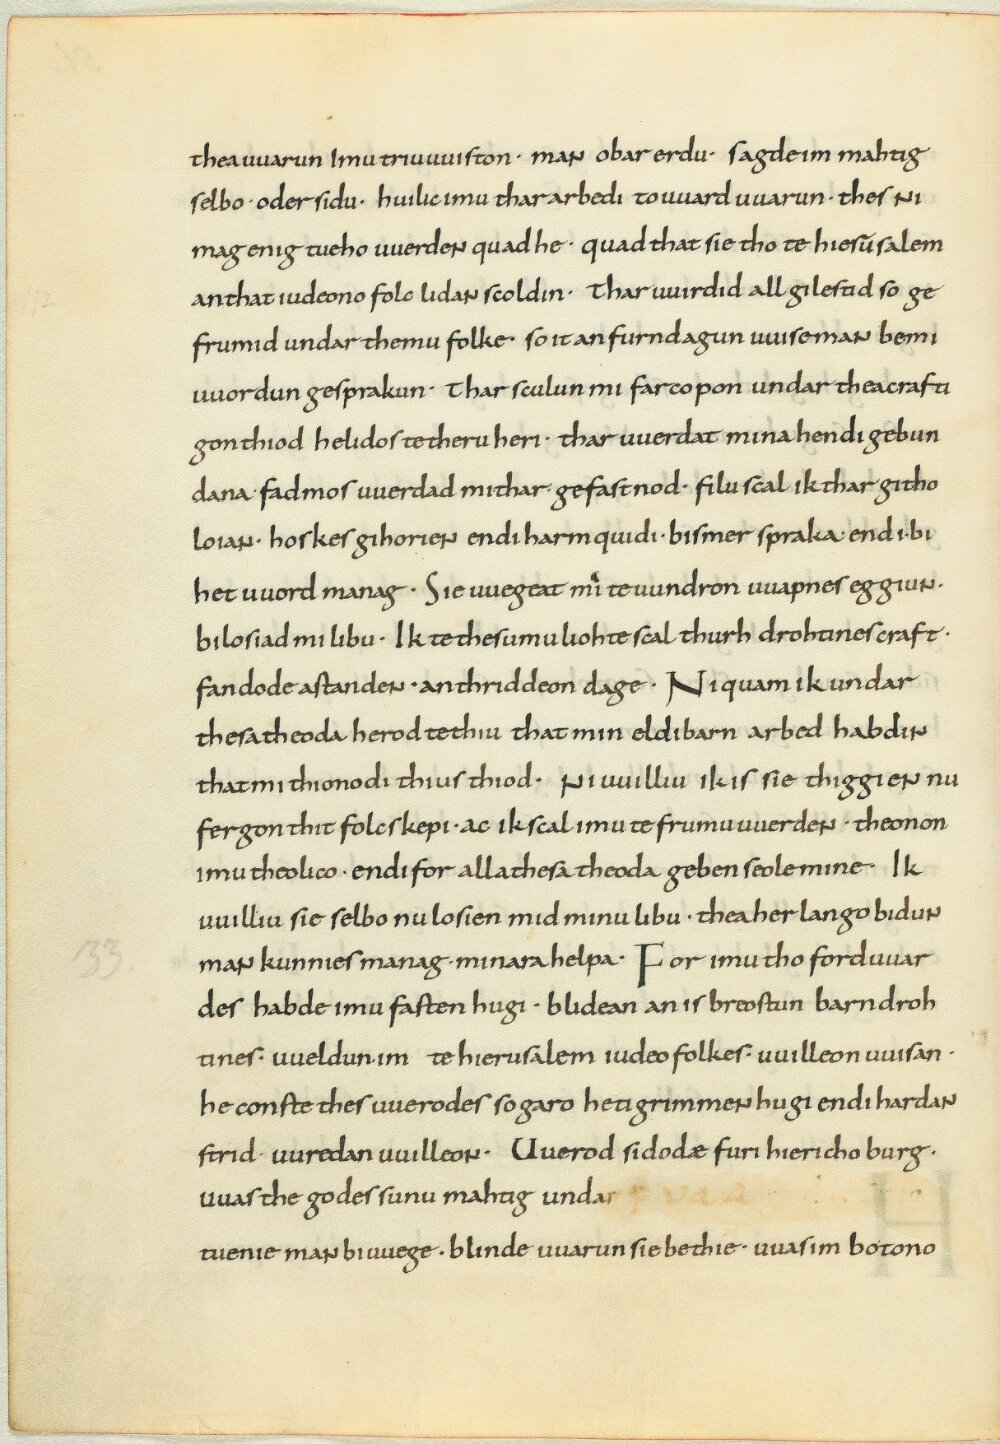 thea uuarun Imu triuuuiston · man obar erdu · sagde im mahtig
selbo · oder sidu · huilic imu thar arbedi touuard uuarun · thes ni
mag enig tueho uuerden quad he · quad that sie tho te hierusalem
an that iudeono folc lidan scoldin · Thar uuirdid all gilestid so ge
frumid undar themu folke · so it an furndagun uuise man be mi
uuordun gesprakun · Thar sculun mi farcopon undar thea crafti
gon thiod helidos te theru heri · thar uuerdat mina hendi gebun
dana · fadmos uuerdad mi thar · gefastnod · filu scal ik thar githo
loian · hoskes gihorien endi harmquidi · bismer spraka · endi · bi
het uuord manag · Sie uuegeat mi te uundron uuapnes eggiun ·
bilosiad mi libu · Ik te thesumu liohte scal thurh drohtines craft ·
fan dode astanden · an thriddeon dage · Ni quam ik undar
thesa theoda herod te thiu that min eldibarn arbed habdin
that mi thionodi thius thiod · ni uuilliu ik is sie thiggien nu
fergon thit folcskepi · ac ik scal imu te frumu uuerden · theonon
imu theolico · endi for alla thesa theoda geben seole mine · Ik
uuilliu sie selbo nu losien mid minu libu · thea her lango bidun
mankunnies manag · minara helpa · For imu tho forduuar
des habde imu fasten hugi · blidean an is breostun barn droh
tines · uueldun · im te hierusalem iudeo folkes · uuilleon uuisan ·
he conste thes uuerodes so garo hetigrimmen hugi endi hardan
strid · uuredan uuilleon · Uuerod sidodæ furi hiericho burg ·
uuas the godes sunu mahtig undar
tuenie man bi uuege · blinde uuarun sie bethie · uuas im botono
133